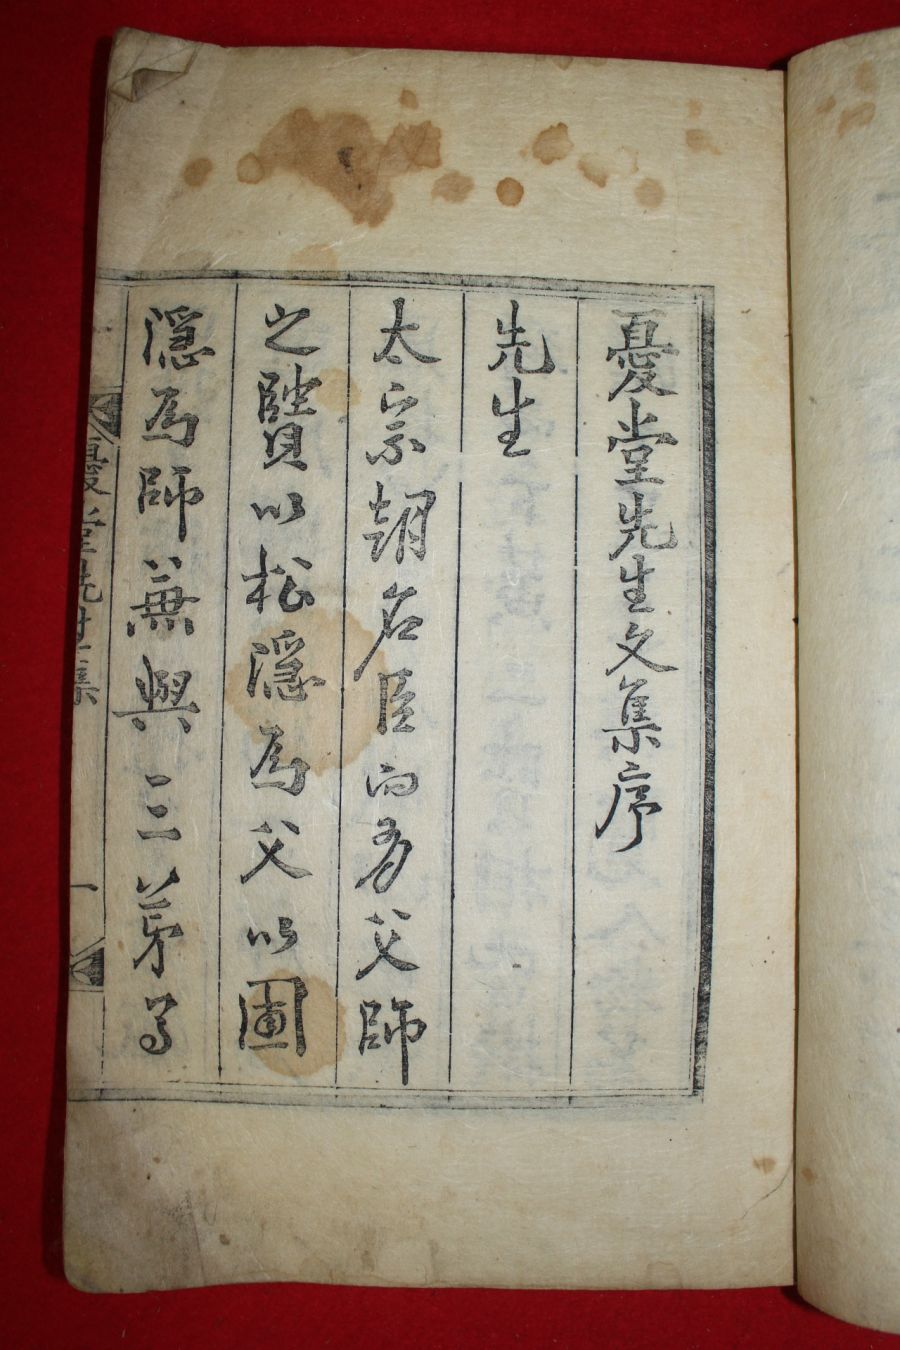 憂堂先生文集序
先生
太宗朝名臣而有父師
之賢以松隱爲父以圃
隱爲師兼與三苐
憂堂先生文集
一